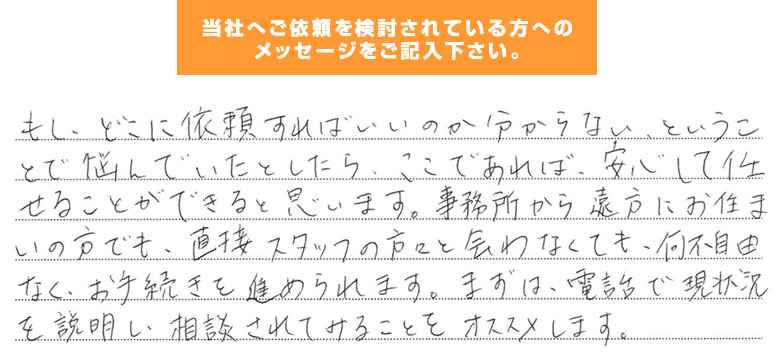 当社へご依頼を検討されている方への
メッセージをご記入下さい。
もし、どこに依頼すればいいのか分からない、というこ
とで悩んでいたとしたら、ここであれば、安心して任
せることができると思います。事務所から遠方にお住ま
いの方でも、直接スタッフの方々と会わなくても、何不自由
なく、お手続きを進められます。まずは、電話で現状況
を説明し、相談されてみることをオススメします。